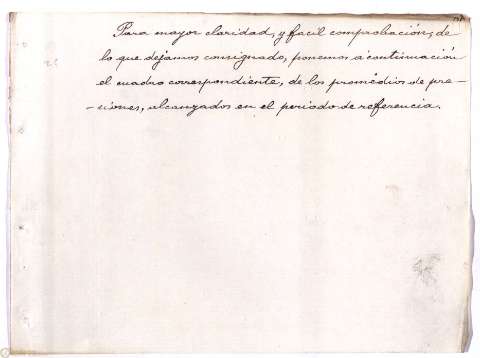 Para mayor claridad, y facil comprobación, de
lo que dejamos consignado, ponemos á continuación
el cuadro correspondiente, de los promédios de pre-
-ciones, alcanzados en el periodo de referencia.